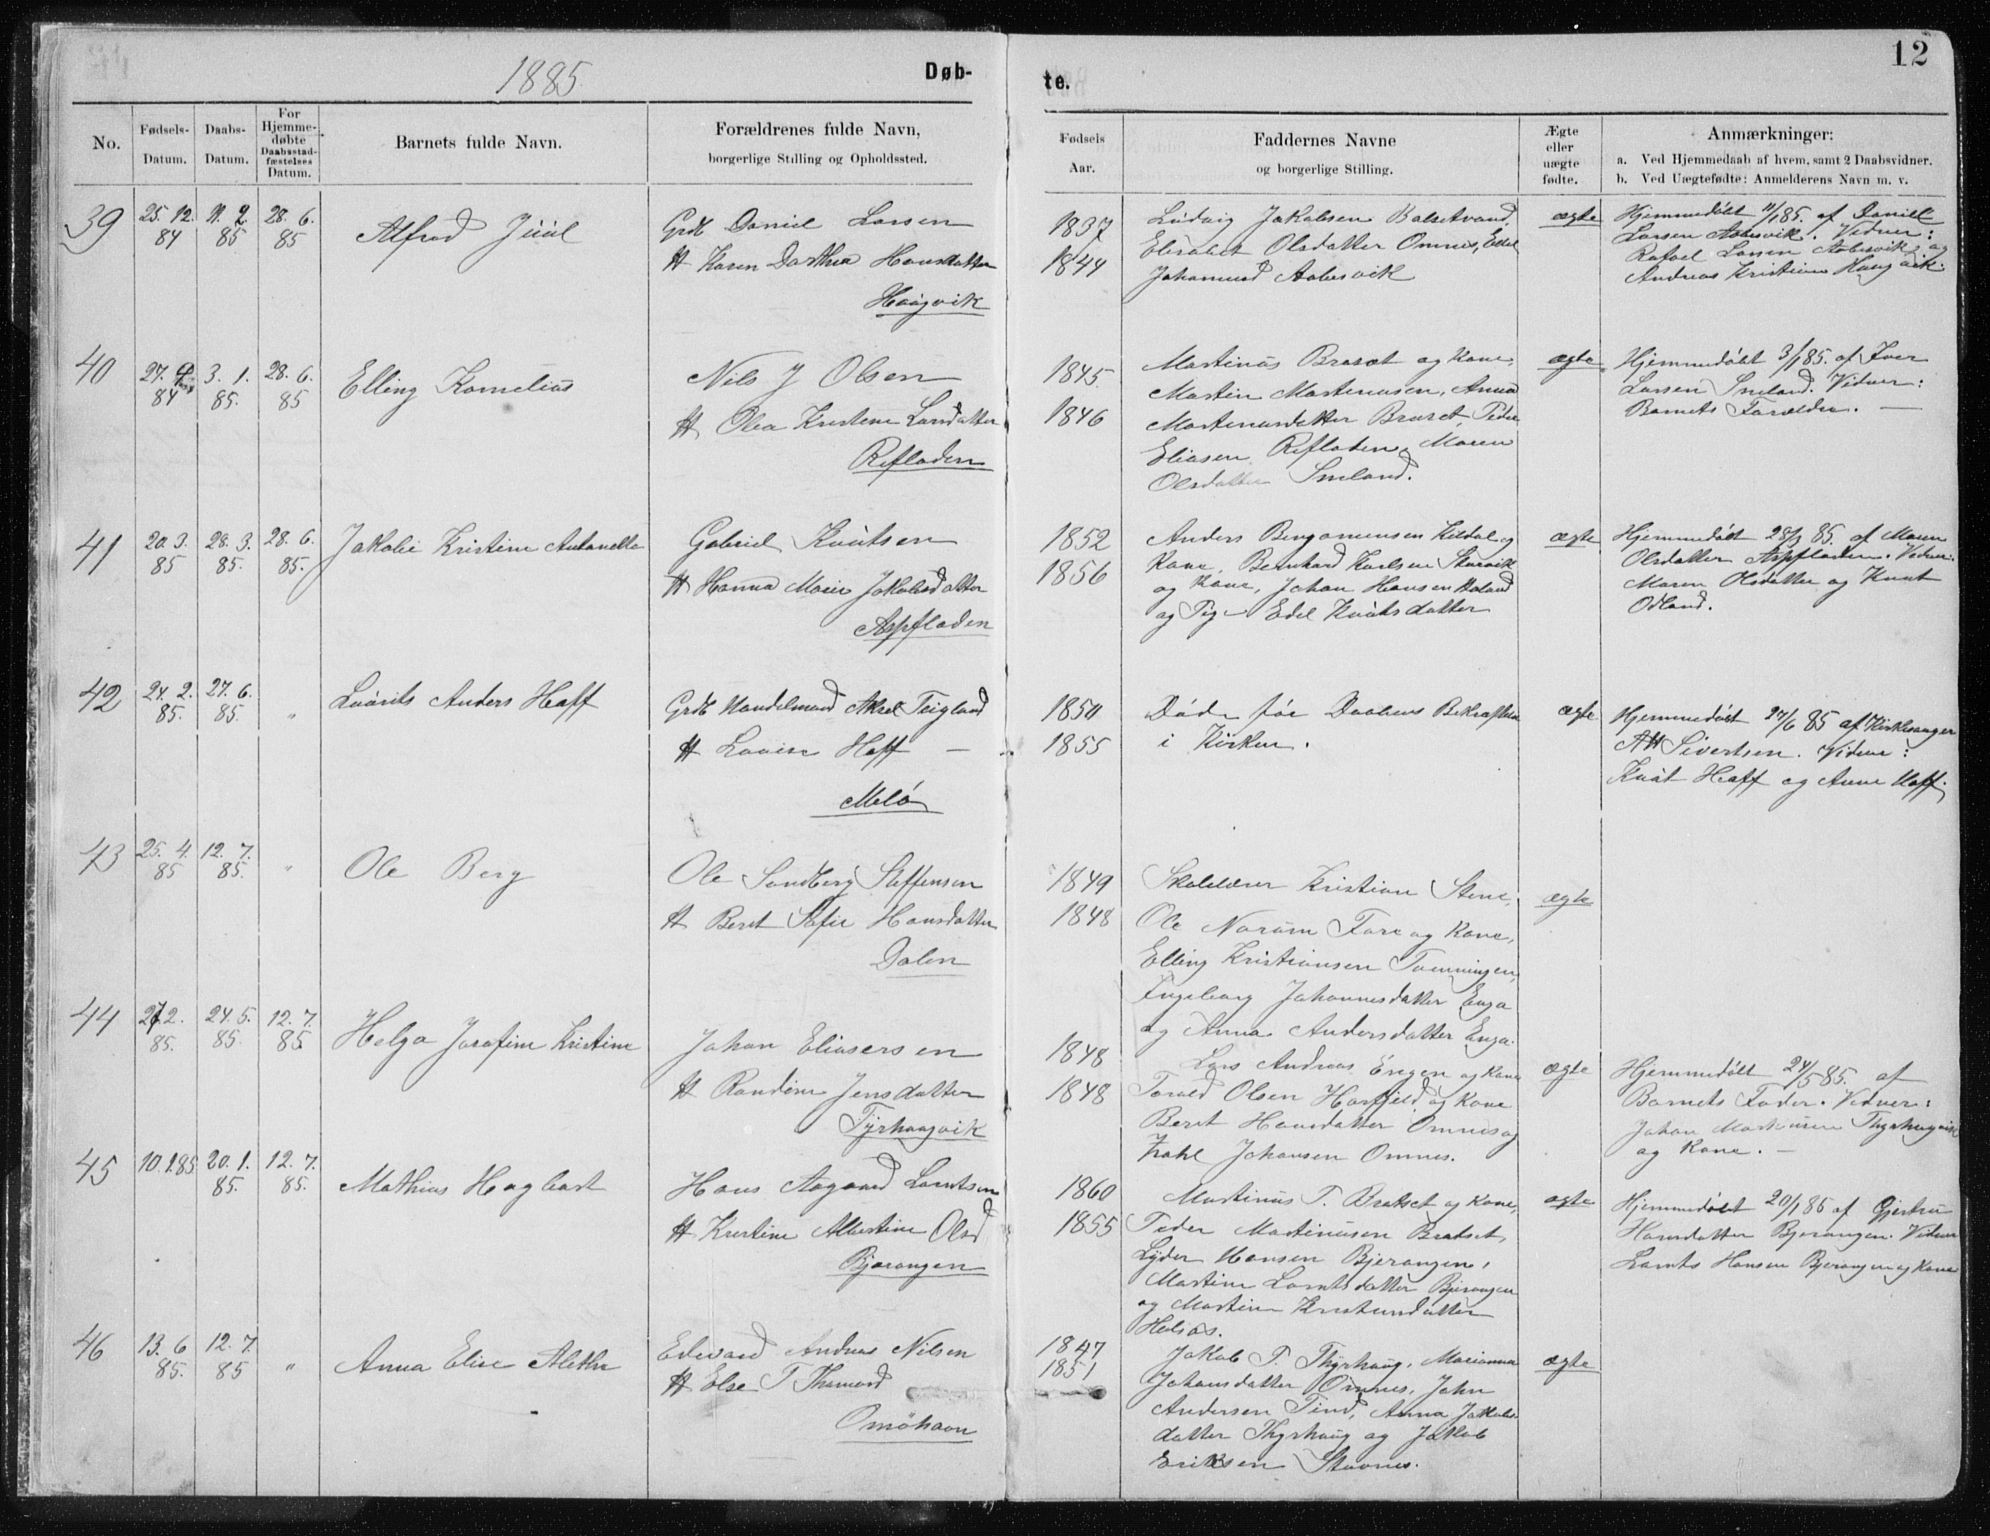 1885
Døb-
te.
12
No.
Fødsels-
Datum.
Daabs-
Datum.
For
Hjemme-
døbte
Daabsstad-
fæstelses
Datum.
Barnets fulde Navn.
Forældrenes fulde Navn,
borgerlige Stilling og Opholdssted.
Fødsels
Aar.
Faddernes Navne
og borgerlige Stilling.
Ægte
eller
uægte
fødte.
Anmærkninger:
a. Ved Hjemmedaab af hvem, samt 2 Daabsvidner.
b. Ved Uægtefødte: Anmelderens Navn m. v.
39
25. 12.
84
11. 2.
85
28. 6.
85
Alfred Juul
Grdb Daniel Larsen
H Karen Dorthea Hansdatter
Haugvik
1837
1844
Ludvig Jakobsen
Elisabet Olsdatter Omnes, Edel
Johannesd
ægte
Hjemmedøbt 11/1 85. af Daniel
Larsen Aabesvik. Vidner:
Rafael Larsen Aabesvik og
Andreas Kristian Haugvik.
40
84
3. 1.
85.
28. 6.
85
Elling Kornelius
Nils J Olsen
H Olea Kristine Larsdatter
Refladen
1845
1846
Martinus Braset og Kone,
Martin Martinusen, Anna
Martinusdatter Braset, Peder
Eliasen Refladen, Maren
Olsdatter Sneland.
ægte
Hjemmedøbt 3/1 85. af Iver
Larsen Sneland. Vidner:
Barnets Forældre. —
41
20. 3.
85
28. 3.
85.
28. 6.
85.
Jakobie Kristine Antonette
Gabriel Knutsen
H Hanna Marie Jakobsdatter
Aspfladen
1852
1856
Anders Bengamensen Kildal og
Kone, Bernhard Karlsen
og Kone, Johan Hansen
og Pige Edel Knutsdatter
ægte
Hjemmedøbt 28/3 85. af Maren
Olsdatter Aspfladen. Vidner:
Maren Olsdatter og Knut
Odland.
42
24. 2.
85.
27. 6.
85.
"
Laurits Anders Haff
Grdb Handelsmand Aksel Teigland
H Lovise Haff —
Melø
1850
1855
Døde før Daabens Bekræftelse
i Kirken.
ægte
Hjemmedøbt 27/6 85 af Kirkesanger
A H Sivertsen. Vidner:
Knut Haff og Anne Haff.
43
25. 4.
85
12. 7.
85.
"
Ole Berg
Ole Sandberg Steffensen
H Beret Sofie Hansdatter
Dalen
1849
1848
Skolelærer Kristian Stene,
Ole Norum Fore og Kone,
Elling Kristiansen Tømmingen,
Ingeborg Johannesdatter Enga
og Anna Andersdatter Enga.
ægte
44
27. 2.
85.
24. 5.
85.
12. 7.
85
Helga Josefine Kristine
Johan Eliasersen
H Randine Jensdatter
Tyrhaugvik
1848
1848
Lars Andreas og Kone
Torald Olsen Harfjeld og Kone
Beret Hansdatter Omnes og
Johansen Omnes.
ægte
Hjemmedøbt 24/5 85. af
Barnets Fader. Vidner:
Johan Martinusen Thyrhaugvik
og Kone. —
45
10. 1. 85
20. 1.
85.
12. 7.
85.
Mathias Hagbart
Hans Aagaard Lorntsen
H Kristine Albertine Olsd
Bjerangen
1860
1855
Martinus P. Bratset og Kone,
Peder Martinusen Bratset,
Lyder Hansen Bjerangen,
Martine Lorntsdatter Bjerangen
og Martine Kristensdatter
Helsos.
ægte
Hjemmedøbt 20/1 85 af Gjertru
Hansdatter Bjerangen. Vidner
Lornts Hansen Bjerangen og Kone
46
13. 6
85.
12. 7.
85
"
Anna Elise Alethe
Edvard Andreas Nilsen
H Else T Thomasd
Omøhavn
1847
1851
Jakob P. Thyrhaug, Marianna
Johansdatter Omnes, John
Andersen Tind, Anna Jakobs-
datter Thyrhaug og Jakob
Eriksen Stavnes.
ægte